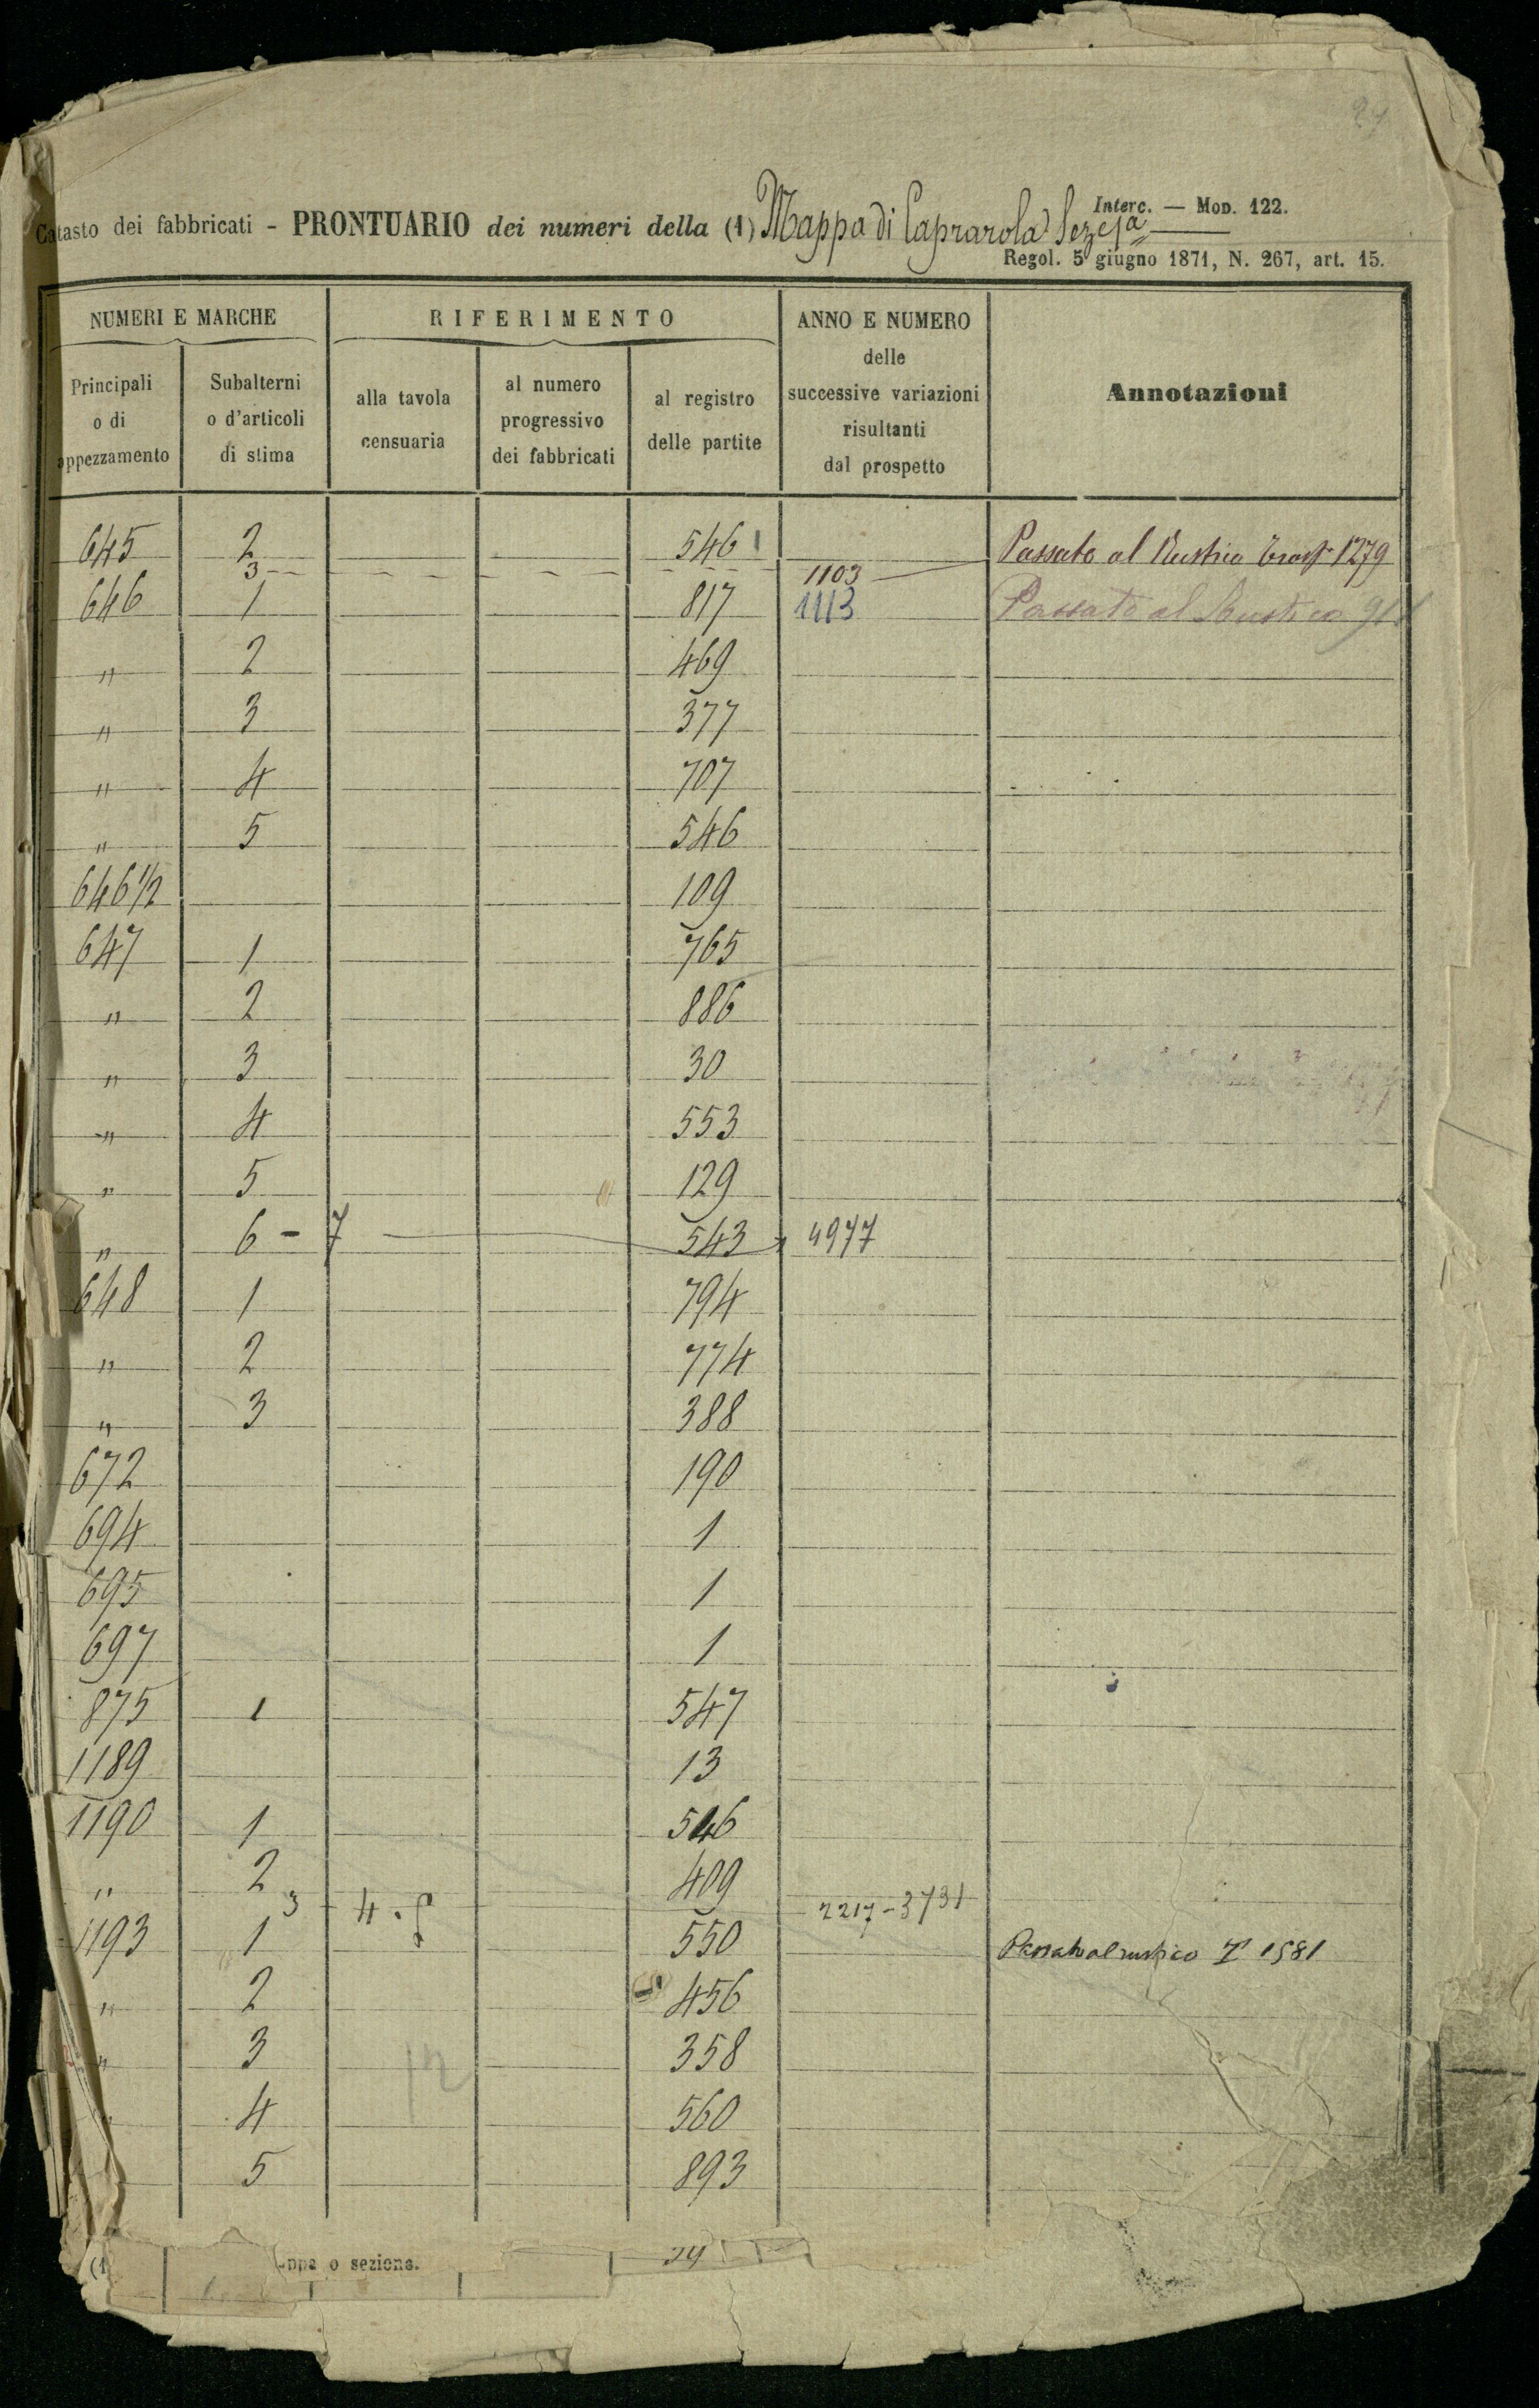 Interc. — Mod. 122.
Catasto dei fabbricati - PRONTUARIO dei numeri della (1) Mappa di Caprarola Sez. 1a
Regol. 5 giugno 1871, N. 267, art. 15.
NUMERI E MARCHE RIFERIMENTO ANNO E NUMERO delle successive variazioni risultanti dal prospetto Annotazioni
Principali o di appezzamento Subalterni o d'articoli di stima alla tavola censuaria al numero progressivo dei fabbricati al registro delle partite
645 2 546 Passato al Rustico Trasp 1279
3 1103
646 1 817 1113 Passato al Rustico
" 2 469
" 3 377
" 4 707
" 5 546
646 1/2 109
647 1 765
" 2 886
" 3 30
" 4 553
" 5 129
" 6 - 7 543 4977
648 1 794
" 2 774
" 3 388
672 190
694 1
695 1
697 1
875 1 547
1189 13
1190 1 546
" 2 409
3 4 . 5 2217-3731
1193 1 550 Passato al rustico T 1581
" 2 456
" 3 358
" 4 560
5 893
(1 o sezione.